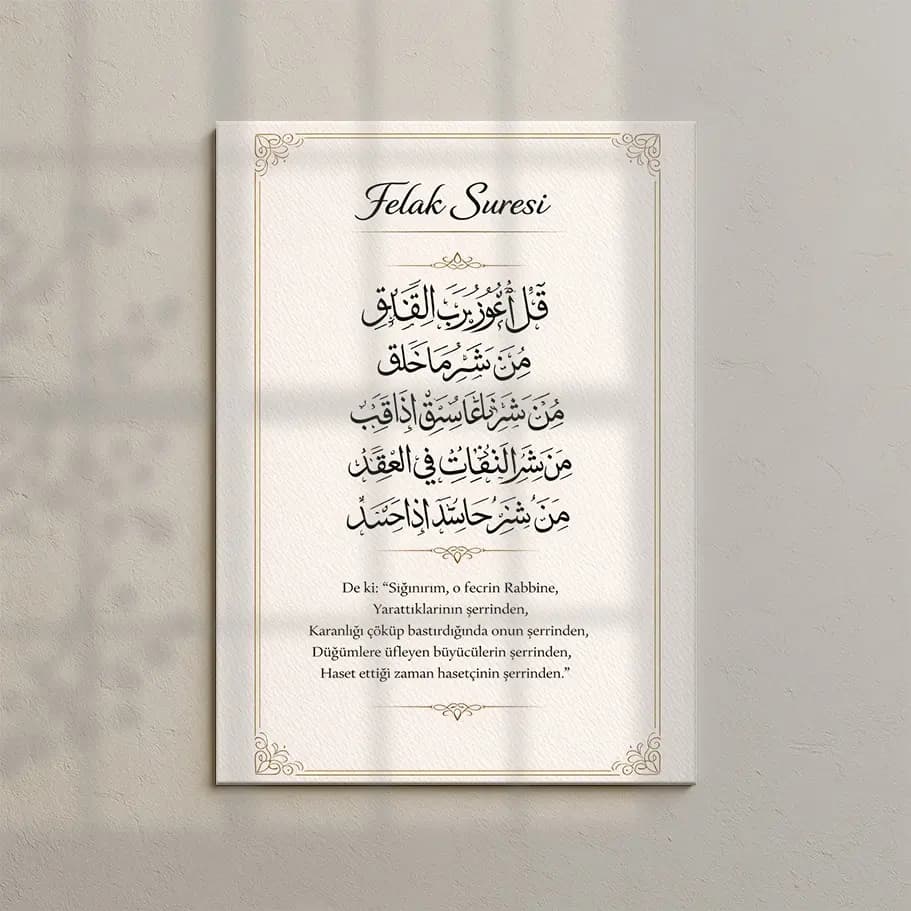 Felak Suresi
قَل أعُوزُ بَرَبَ القَلَقِ
مُنَ شَرِ مَا خَلَق
مُنَ شَرِ إذَا قَبَ
مِنَ شَرِ النَفَاتِ في العُقَدُ
مِنَ شَرُ حَاسِدَ إذا حَسَدُ
De ki: “Sığınırım, o fecrin Rabbine,
Yarattıklarının şerrinden,
Karanlığı çöküp bastırdığında onun şerrinden,
Düğümlere üfleyen büyücülerin şerrinden,
Haset ettiği zaman hasetçinin şerrinden.”